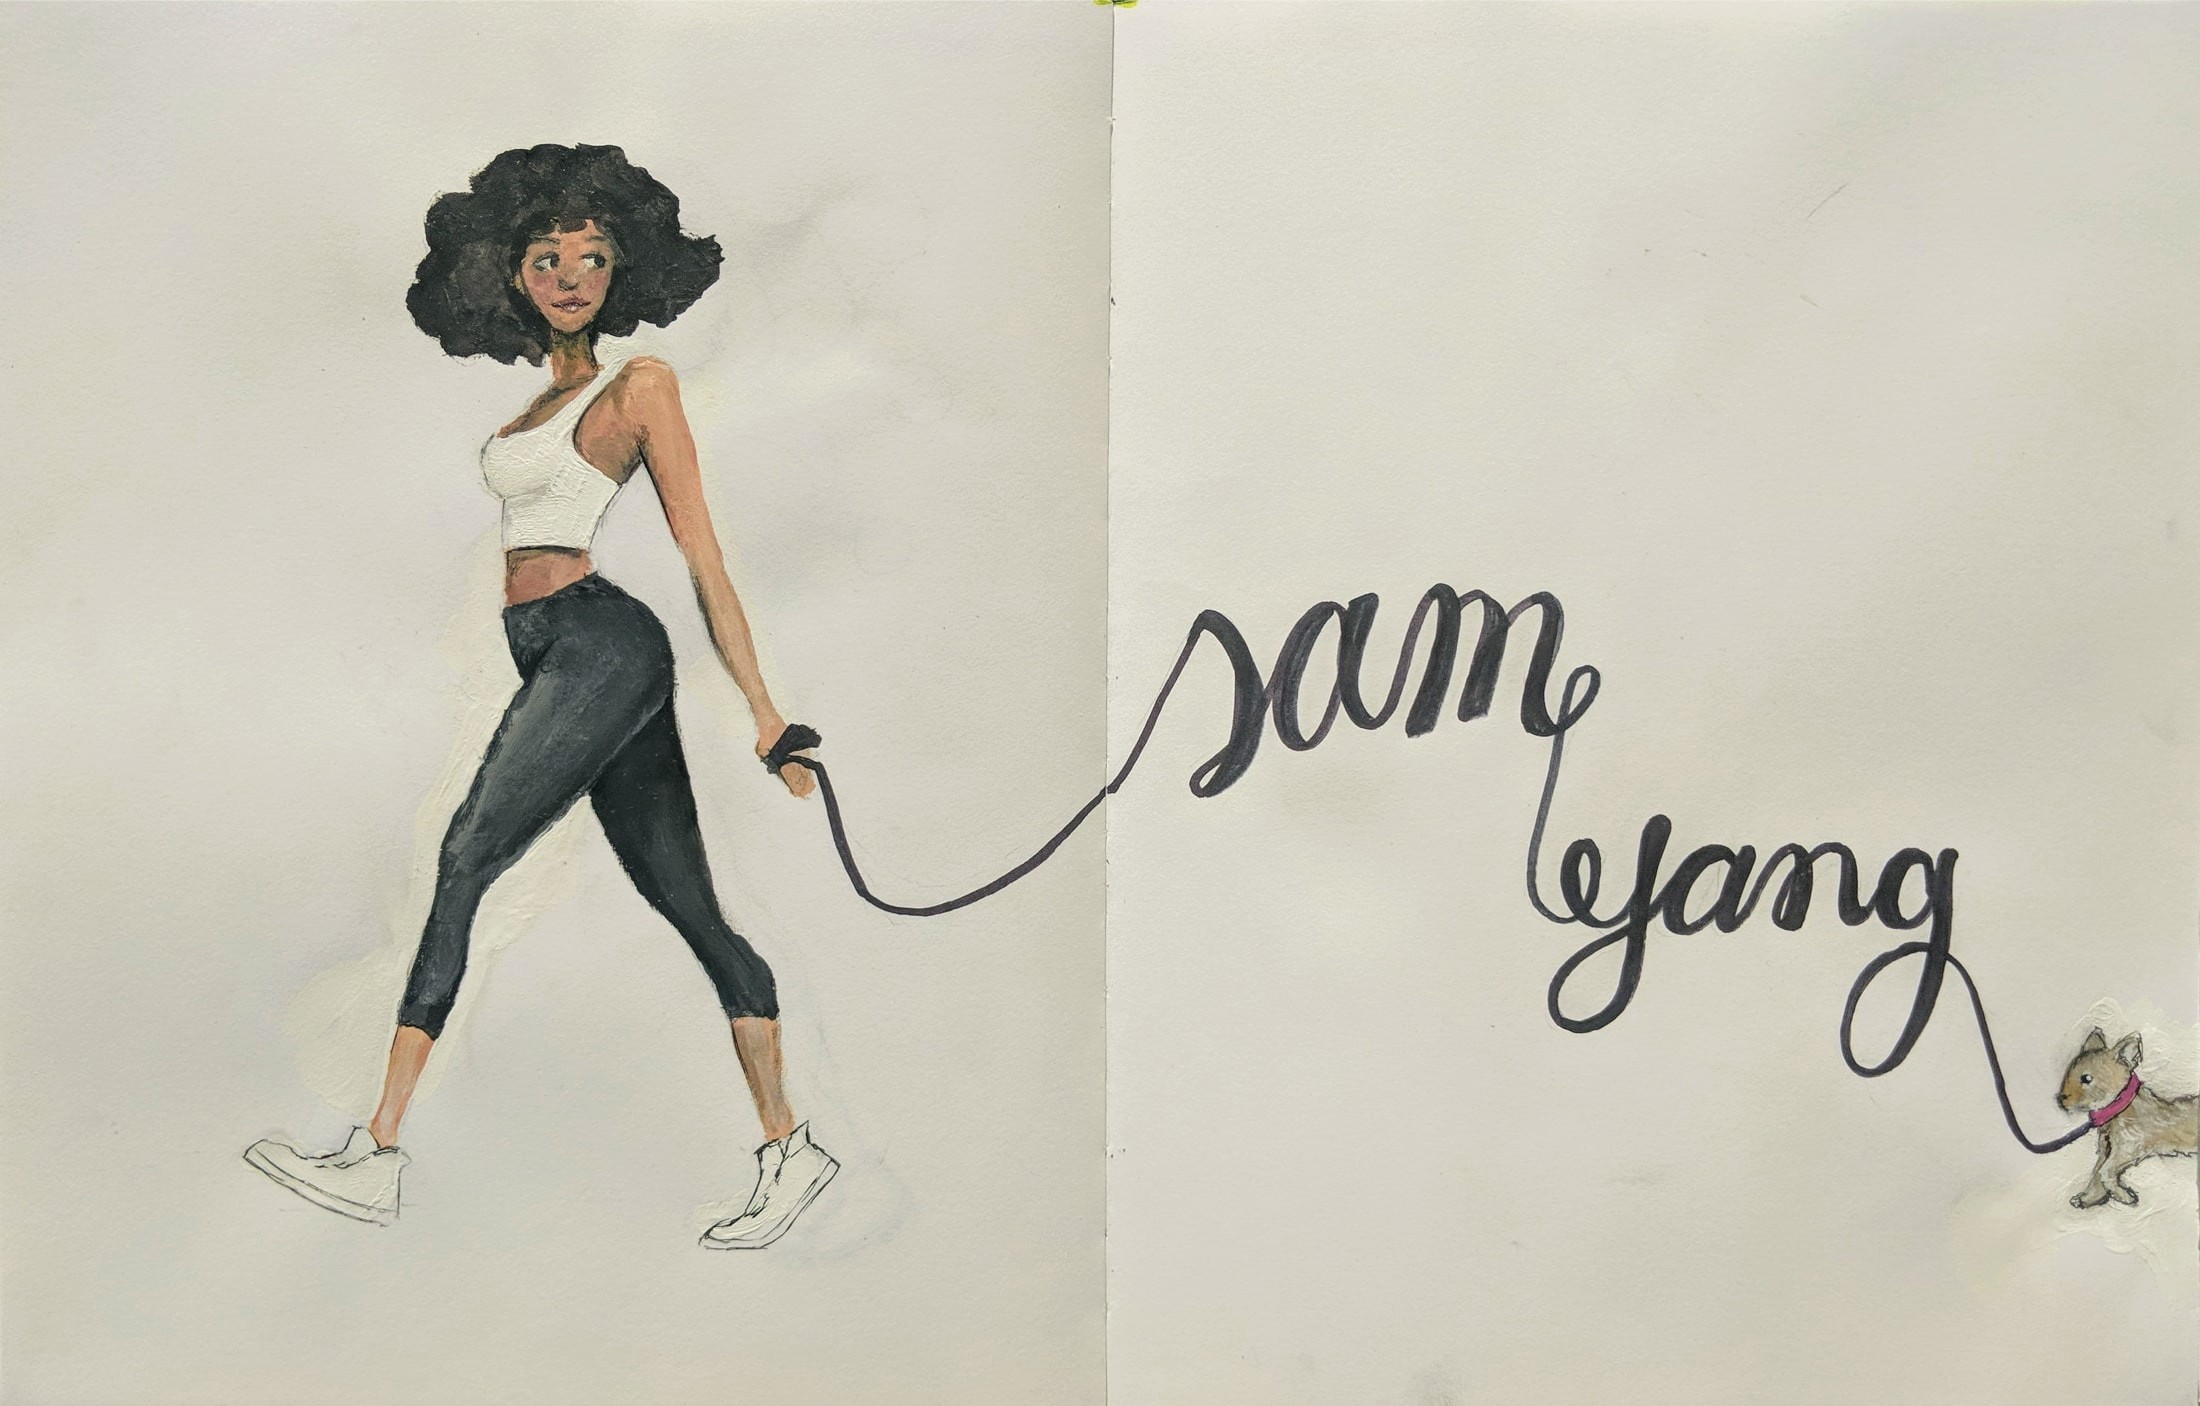 sam
yang